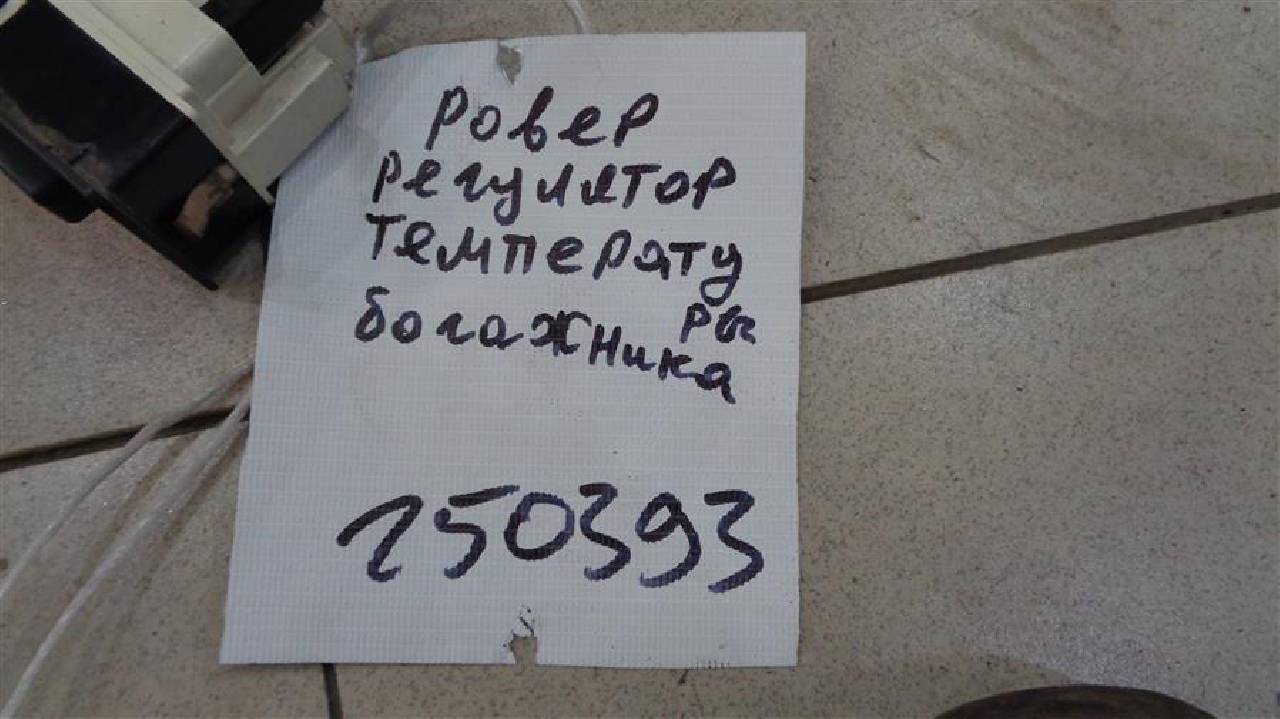 Ровер
регулятор
температу
ры
богажника
150393